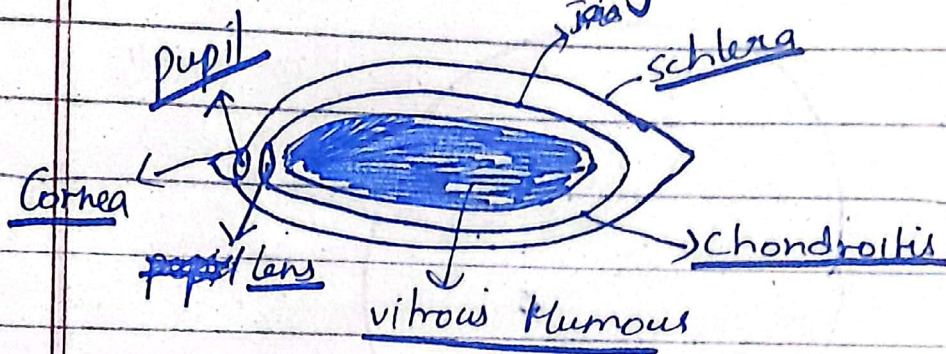 pupil
schlera
Cornea
Lens
Chondroitis
vitrous Humous